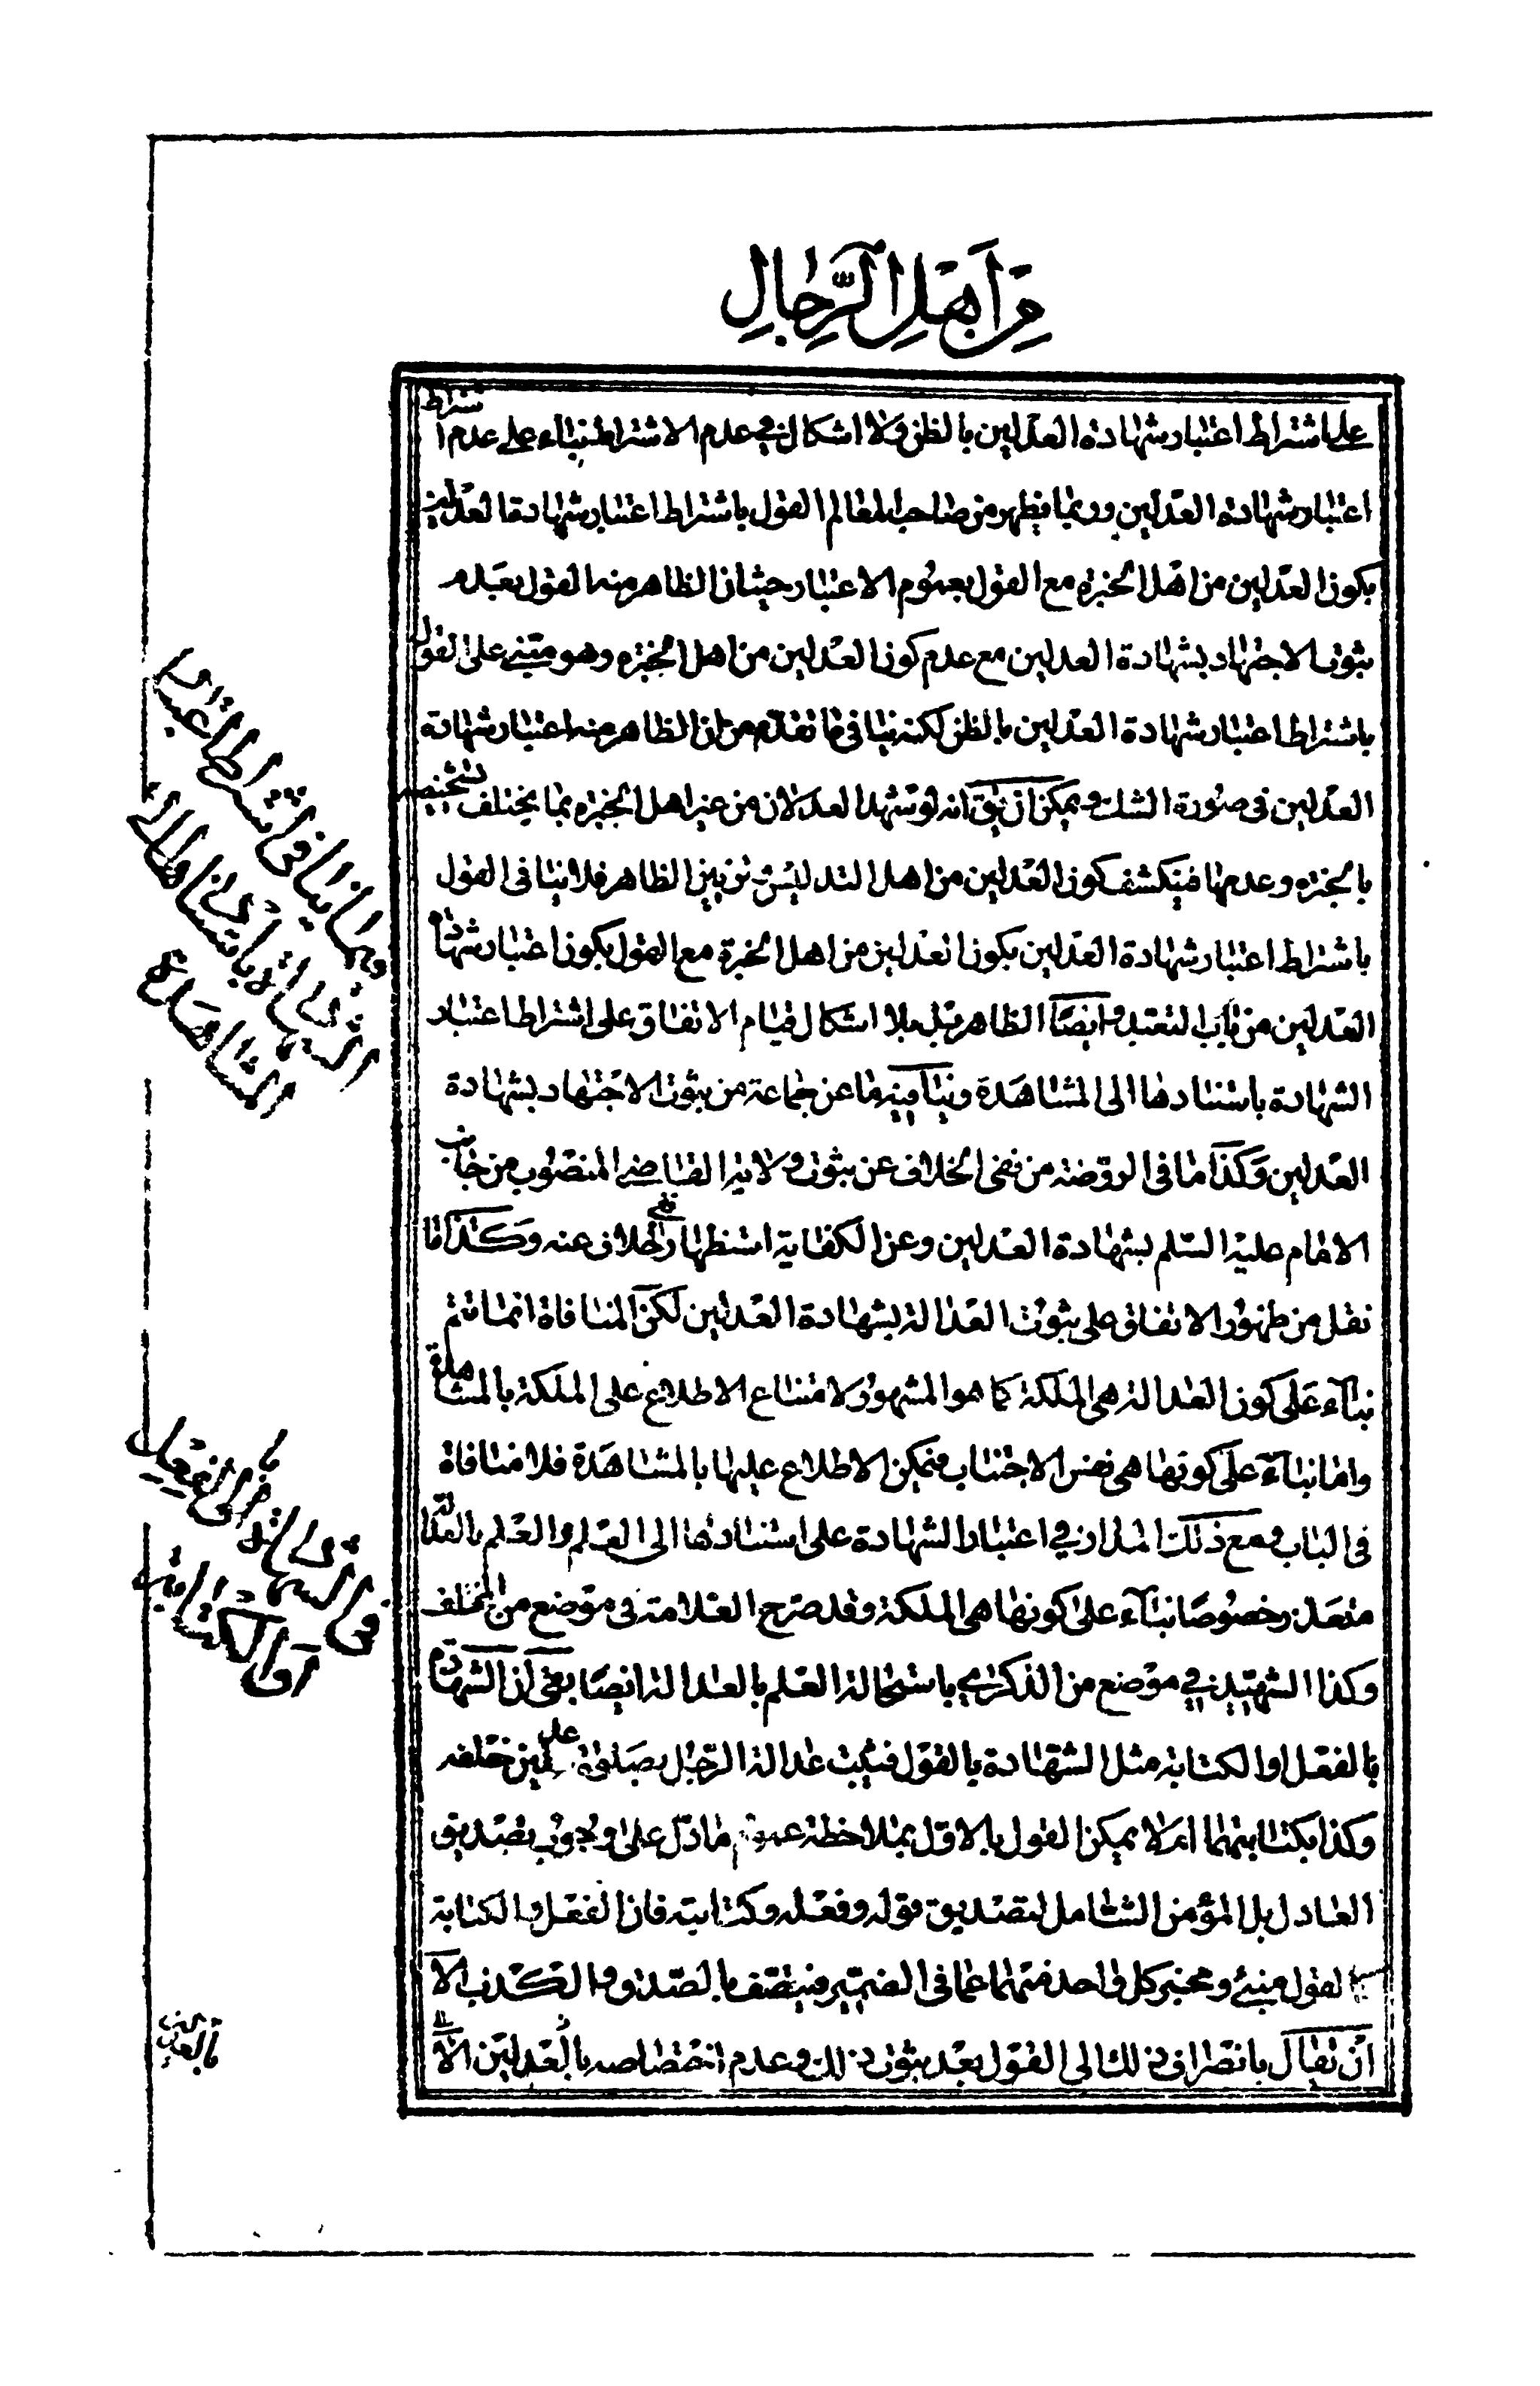 من اهل الرجال
على اشتراط اعتبار شهادة العدلين بالظن ولا اشكال في عدم الاشتراط بناء على عدم اشتراط
اعتبار شهادة العدلين وربما يظهر من صاحب المعالم القول باشتراط اعتبار شهادة العدلين
بكون العدلين من اهل الخبرة مع القول بعموم الاعتبار حيث ان الظاهر منه القول بعدم
ثبوت الاجتهاد بشهادة العدلين مع عدم كون العدلين من اهل الخبرة وهو مبتنى على القول
باشتراط اعتبار شهادة العدلين بالظن لكنه ينافى ما تقدم من ان الظاهر منه اعتبار شهادة
العدلين فى صورة الشك ويمكن ان يق انه لو شهد العدلان من غير اهل الخبرة بما يختلف تشخيصه
بالخبرة وعدمها فينكشف كون العدلين من اهل التدليس ثم تبين الظاهر فلا ينافى القول
باشتراط اعتبار شهادة العدلين بكون العدلين من اهل الخبرة مع القول بكون اعتبار شهادة
العدلين من باب التعبد وايضا الظاهر بل بلا اشكال قيام الاتفاق على اشتراط اعتبار
الشهادة باستنادها الى المشاهدة وينافيه ما عن جماعة من ثبوت الاجتهاد بشهادة
العدلين وكذا ما فى الروضة من نفى الخلاف عن ثبوت ولاية القاضى المنصوب من جانب
الامام عليه السلم بشهادة العدلين وعن الكفاية استظهار نفى الخلاف عنه وكذا ما
نقل من ظهور الاتفاق على ثبوت العدالة بشهادة العدلين لكن المنافاة انما تتم
بناء على كون العدالة هى الملكة كما هو المشهور لامتناع الاطلاع على الملكة بالمشاهدة
واما بناء على كونها هى نفس الاجتناب فيمكن الاطلاع عليها بالمشاهدة فلا منافاة
فى الباب ومع ذلك المدار في اعتبار الشهادة على استنادها الى العلم والعلم بالعدالة
متعذر خصوصا بناء على كونها هى الملكة وقد صرح العلامة فى موضع من المختلف
وكذا الشهيد في موضع من الذكرى باستحالة العلم بالعدالة ايضا بقى ان الشهادة
بالفعل او الكتابة مثل الشهادة بالقول فيثبت عدالة الرجل بصلوة عدلين خلفه
وكذا بكتابتهما ام لا يمكن القول بالاول بملاحظة عموم ما دل على وجوب تصديق
العادل بل المؤمن الشامل لتصديق قوله وفعله وكتابته فان الفعل والكتابة
كالقول مبنئ ومخبر كل واحد منهما عما فى الضمير فيتصف بالصدق والكذب الا
ان يقال بانصراف ذلك الى القول بعد ثبوت ذلك وعدم اختصاصه بالعدلين الا
فيما ينافى اشتراط اعتبار
الشهادة باستنادها الى
المشاهدة
فى الشهادة بالفعل
او الكتابة
بالعدلين